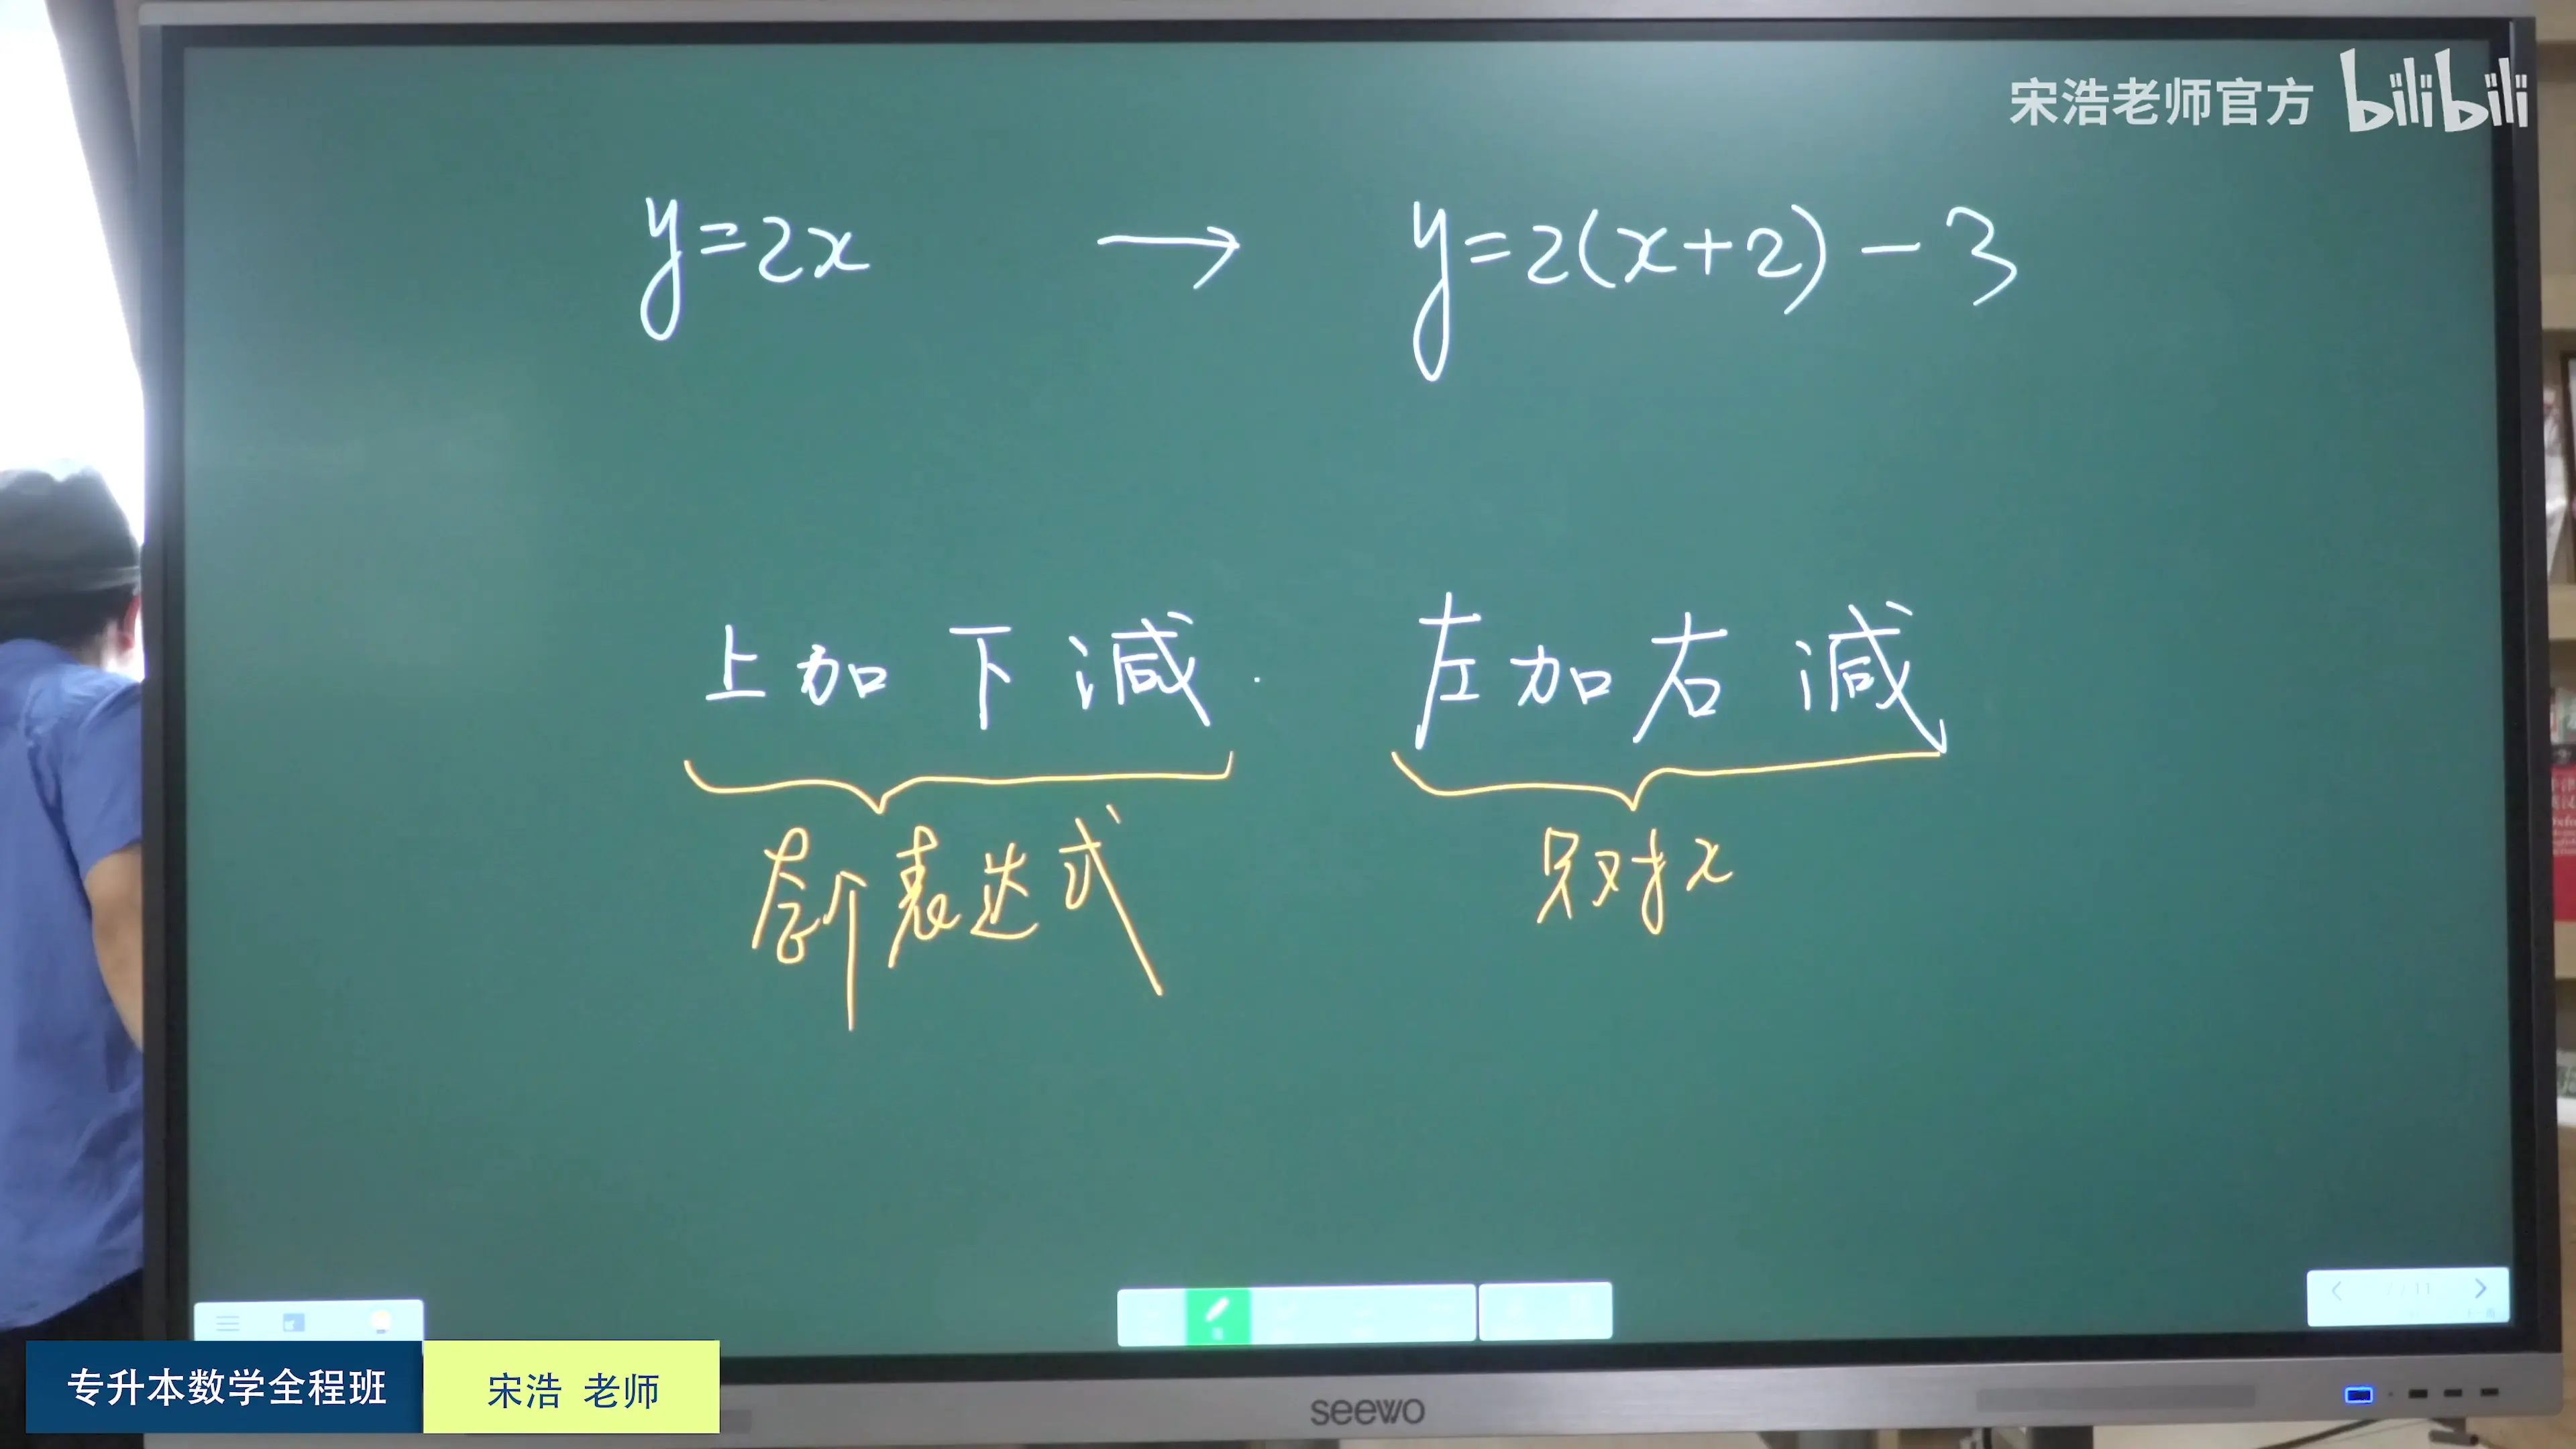 宋浩老师官方 bilibili
y=2x → y=2(x+2)-3
上加下减. 左加右减
整个表达式 只对x
专升本数学全程班 宋浩 老师
seewo